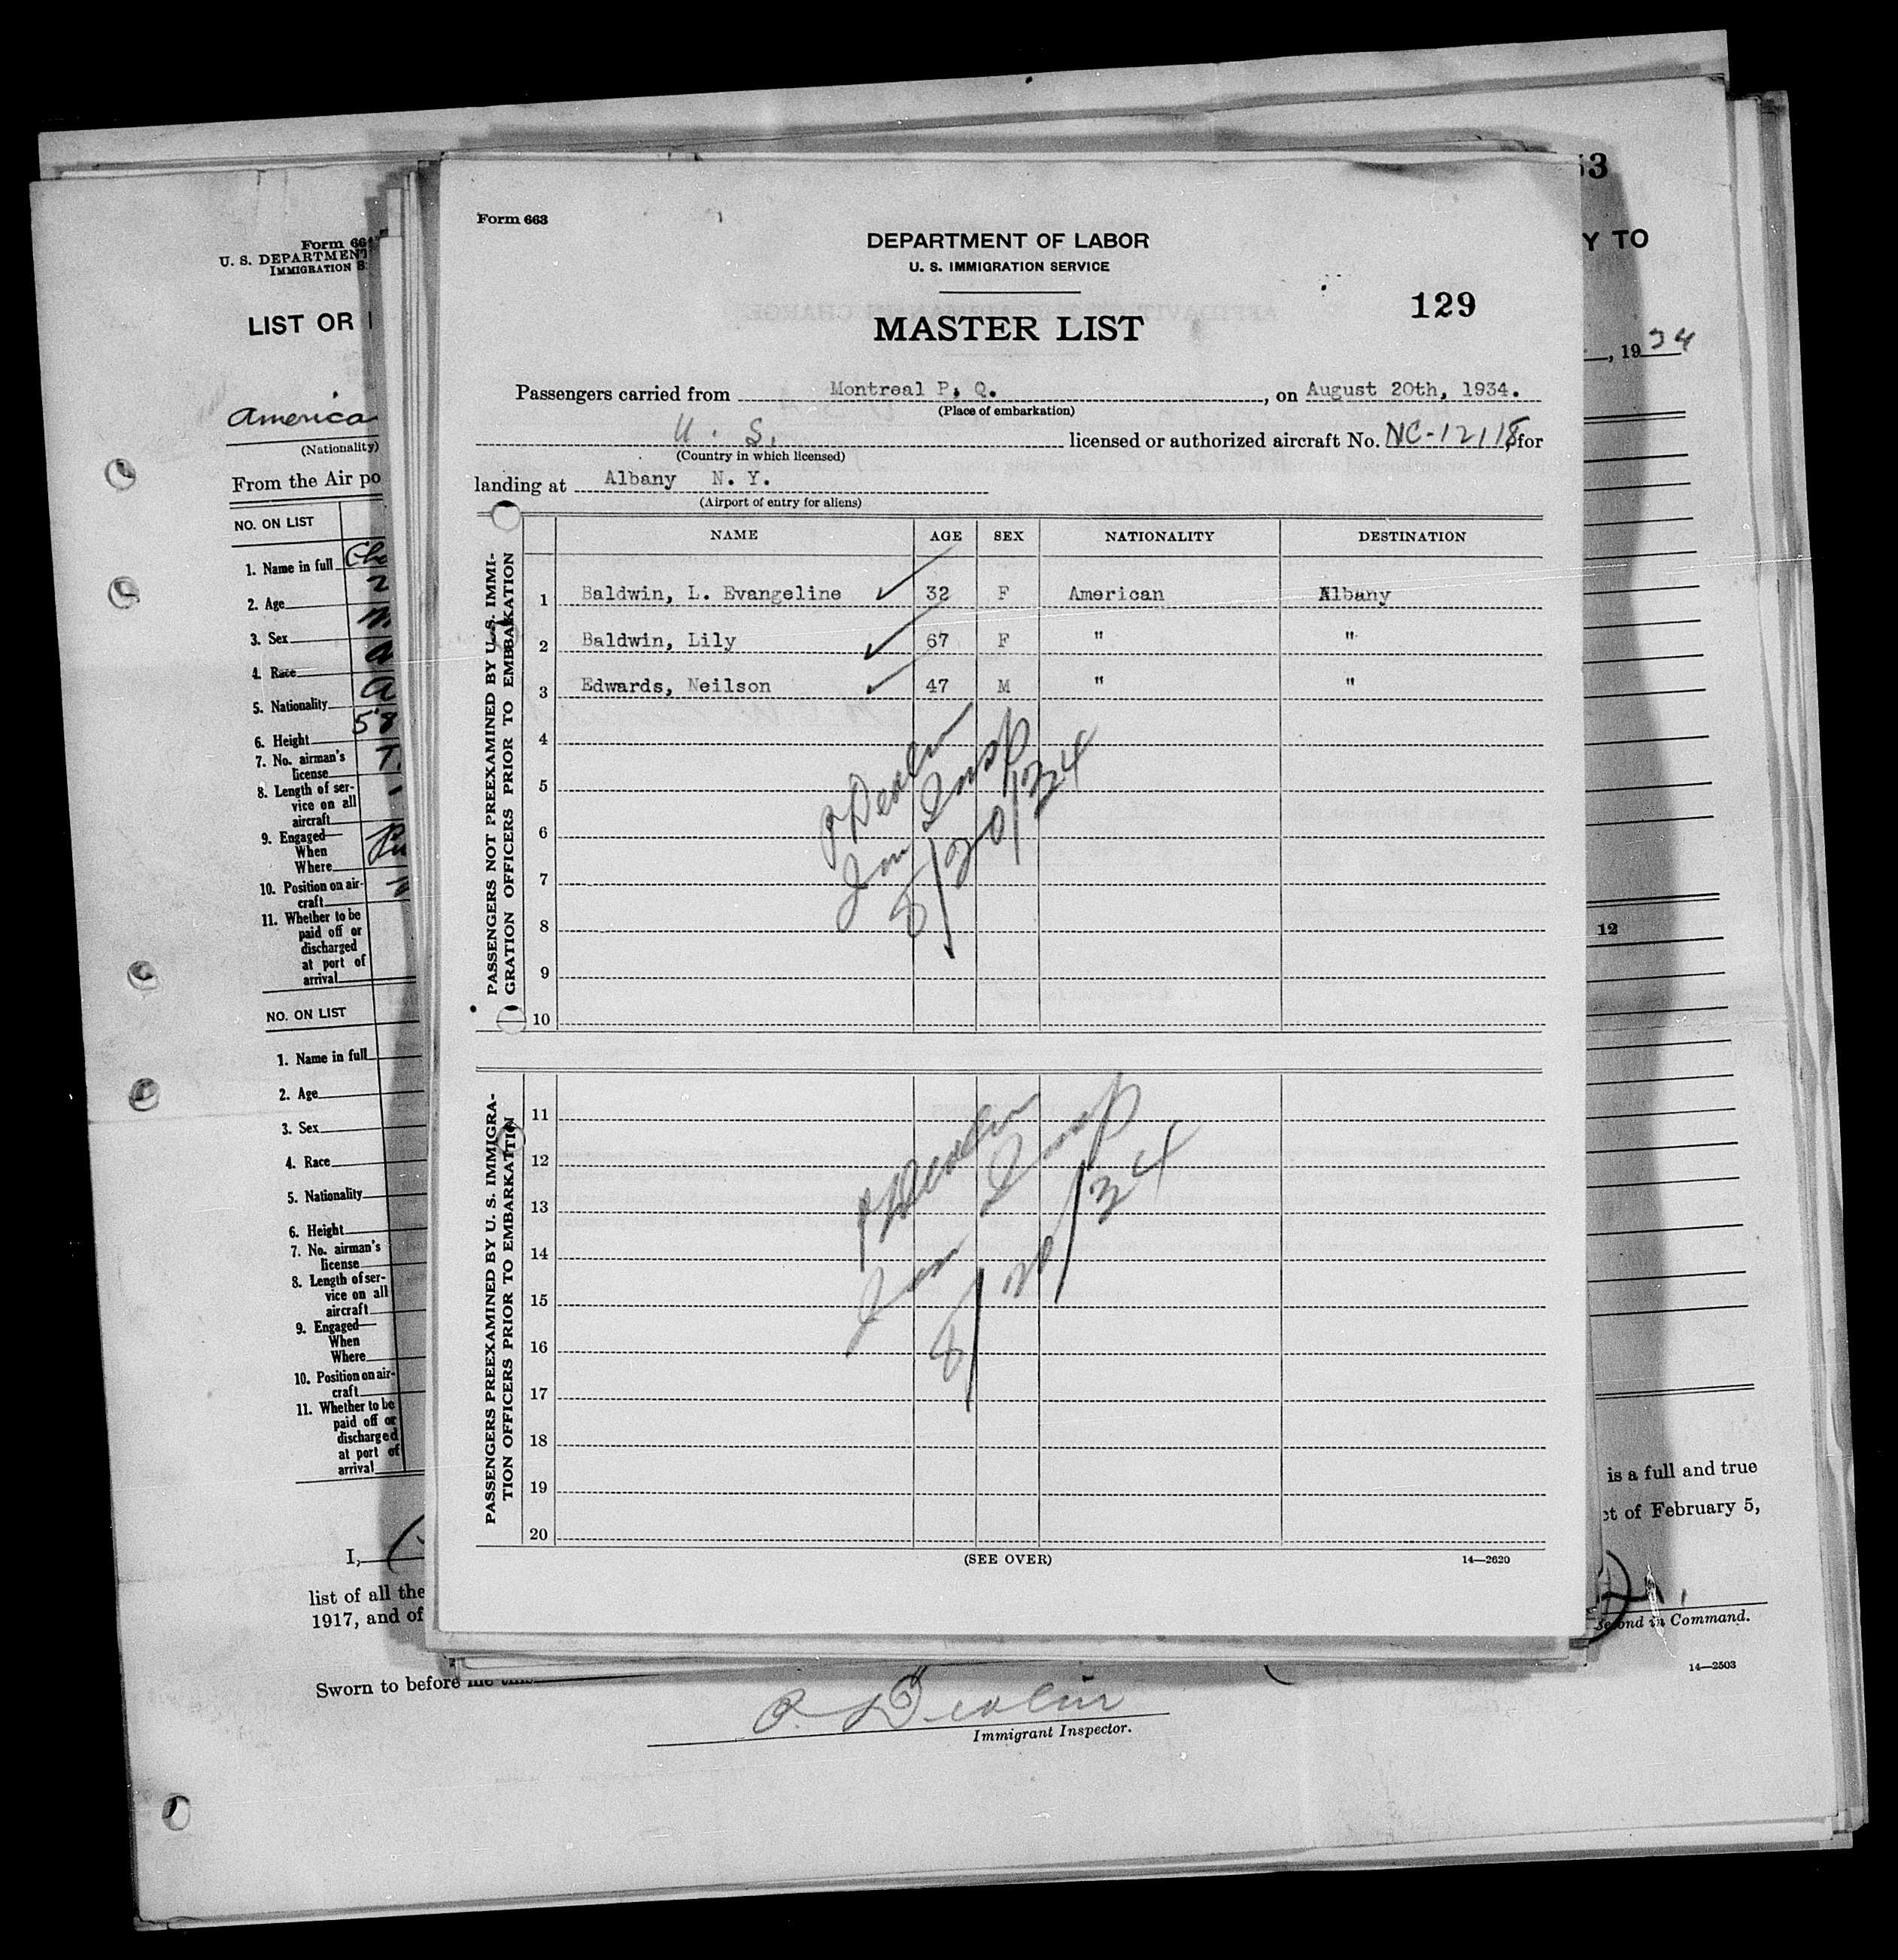 Form 663
DEPARTMENT OF LABOR
U. S. IMMIGRATION SERVICE
129
MASTER LIST
Passengers carried from Montreal P, Q. , on August 20th, 1934.
(Place of embarkation)
U. S. licensed or authorized aircraft No. NC-12118, for
(Country in which licensed)
landing at Albany N. Y.
(Airport of entry for aliens)
NAME AGE SEX NATIONALITY DESTINATION
PASSENGERS NOT PREEXAMINED BY U. S. IMMI-
GRATION OFFICERS PRIOR TO EMBARKATION
1 Baldwin, L. Evangeline 32 F American Albany
2 Baldwin, Lily 67 F " "
3 Edwards, Neilson 47 M " "
4
5
6
7
8
9
10
P Devlin
Imm Insp
8/20/34
PASSENGERS PREEXAMINED BY U. S. IMMIGRA-
TION OFFICERS PRIOR TO EMBARKATION
11
12
13
14
15
16
17
18
19
20
P Devlin
Imm Insp
8/20/34
(SEE OVER)
14—2620
Form 66
U. S. DEPARTMENT
IMMIGRATION S
LIST OR
America
(Nationality)
From the Air po
NO. ON LIST
1. Name in full
2. Age
3. Sex
4. Race
5. Nationality
6. Height 5'8
7. No. airman's
license
8. Length of ser-
vice on all
aircraft
9. Engaged—
When
Where
10. Position on air-
craft
11. Whether to be
paid off or
discharged
at port of
arrival
NO. ON LIST
1. Name in full
2. Age
3. Sex
4. Race
5. Nationality
6. Height
7. No. airman's
license
8. Length of ser-
vice on all
aircraft
9. Engaged—
When
Where
10. Position on air-
craft
11. Whether to be
paid off or
discharged
at port of
arrival
I,
list of all the
1917, and of
Sworn to before me this
P. Devlin
Immigrant Inspector.
53
Y TO
, 1934
12
is a full and true
ct of February 5,
Second in Command.
14—2503